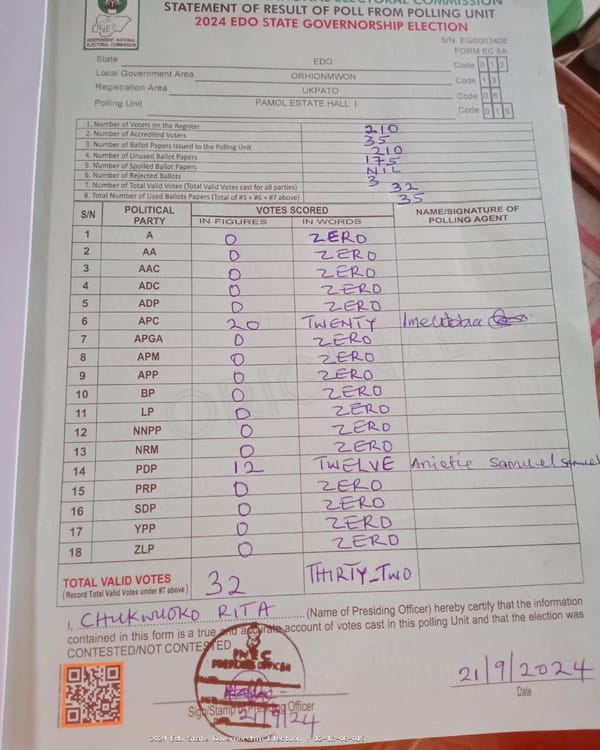 INDEPENDENT NATIONAL ELECTORAL COMMISSION
STATEMENT OF RESULT OF POLL FROM POLLING UNIT
2024 EDO STATE GOVERNORSHIP ELECTION
INEC
INDEPENDENT NATIONAL
ELECTORAL COMMISSION
S/N: EG/0003408
FORM EC 8A
State EDO Code 0 1 2
Local Government Area ORHIONMWON Code 1 3
Registration Area UKPATO Code 0 6
Polling Unit PAMOL ESTATE HALL I Code 0 1 5
1. Number of Voters on the Register 210
2. Number of Accredited Voters 35
3. Number of Ballot Papers Issued to the Polling Unit 210
4. Number of Unused Ballot Papers 175
5. Number of Spoiled Ballot Papers NIL
6. Number of Rejected Ballots 3
7. Number of Total Valid Votes (Total Valid Votes cast for all parties) 32
8. Total Number of Used Ballots Papers (Total of #5 + #6 + #7 above) 35
S/N POLITICAL PARTY VOTES SCORED NAME/SIGNATURE OF POLLING AGENT
IN FIGURES IN WORDS
1 A 0 ZERO
2 AA 0 ZERO
3 AAC 0 ZERO
4 ADC 0 ZERO
5 ADP 0 ZERO
6 APC 20 TWENTY
7 APGA 0 ZERO
8 APM 0 ZERO
9 APP 0 ZERO
10 BP 0 ZERO
11 LP 0 ZERO
12 NNPP 0 ZERO
13 NRM 0 ZERO
14 PDP 12 TWELVE Anietie Samuel Samuel
15 PRP 0 ZERO
16 SDP 0 ZERO
17 YPP 0 ZERO
18 ZLP 0 ZERO
TOTAL VALID VOTES 32 THIRTY-TWO
(Record Total Valid Votes under #7 above)
I, CHUKWUOKO RITA (Name of Presiding Officer) hereby certify that the information
contained in this form is a true and accurate account of votes cast in this polling Unit and that the election was
CONTESTED/NOT CONTESTED
INEC
PRESIDING OFFICER
21/9/24
Sign/Stamp of Presiding Officer
21/9/2024
Date
2024 Edo State Governorship Election - 12-13-06-015